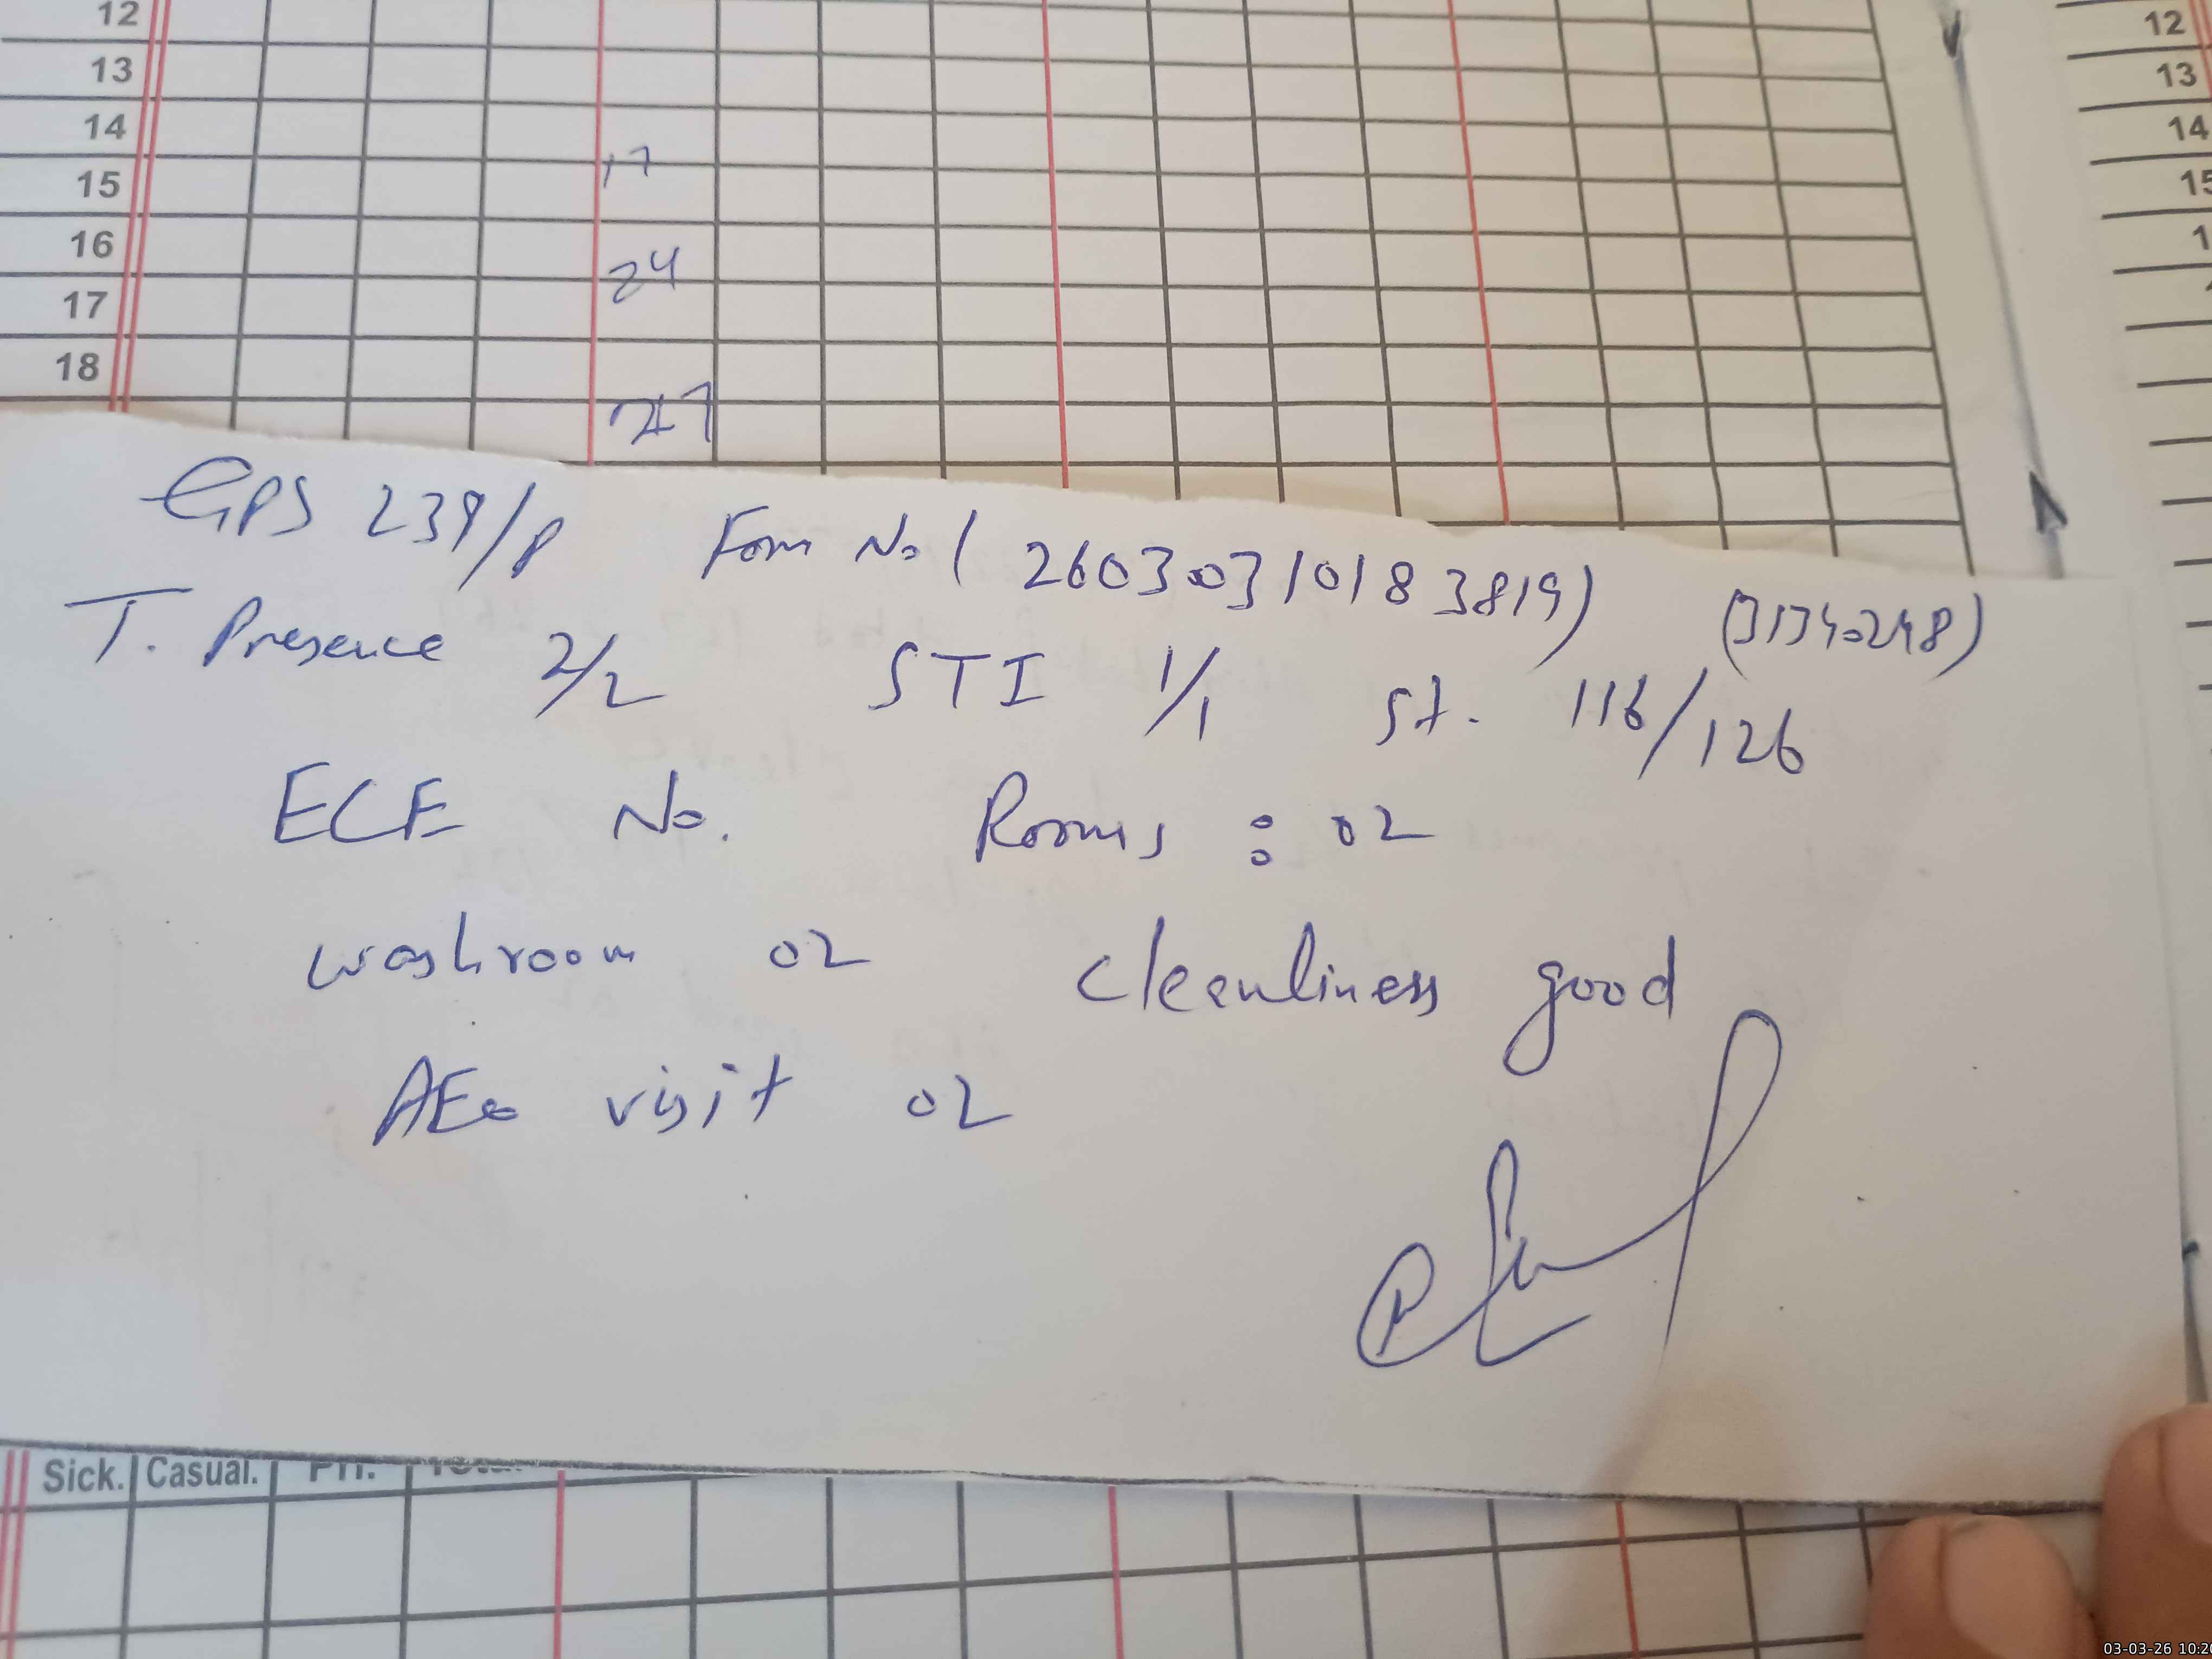 12
13
14
15
16
17
18
17
24
12
13
14
GPS 239/P Form No ( 26030310183819) (31340248)
T. Presence 2/2 STI 1/1 St. 116/126
ECE No. Rooms : 02
washroom 02 cleanliness good
AEo visit 02
Sick. Casual.
03-03-26 10:20